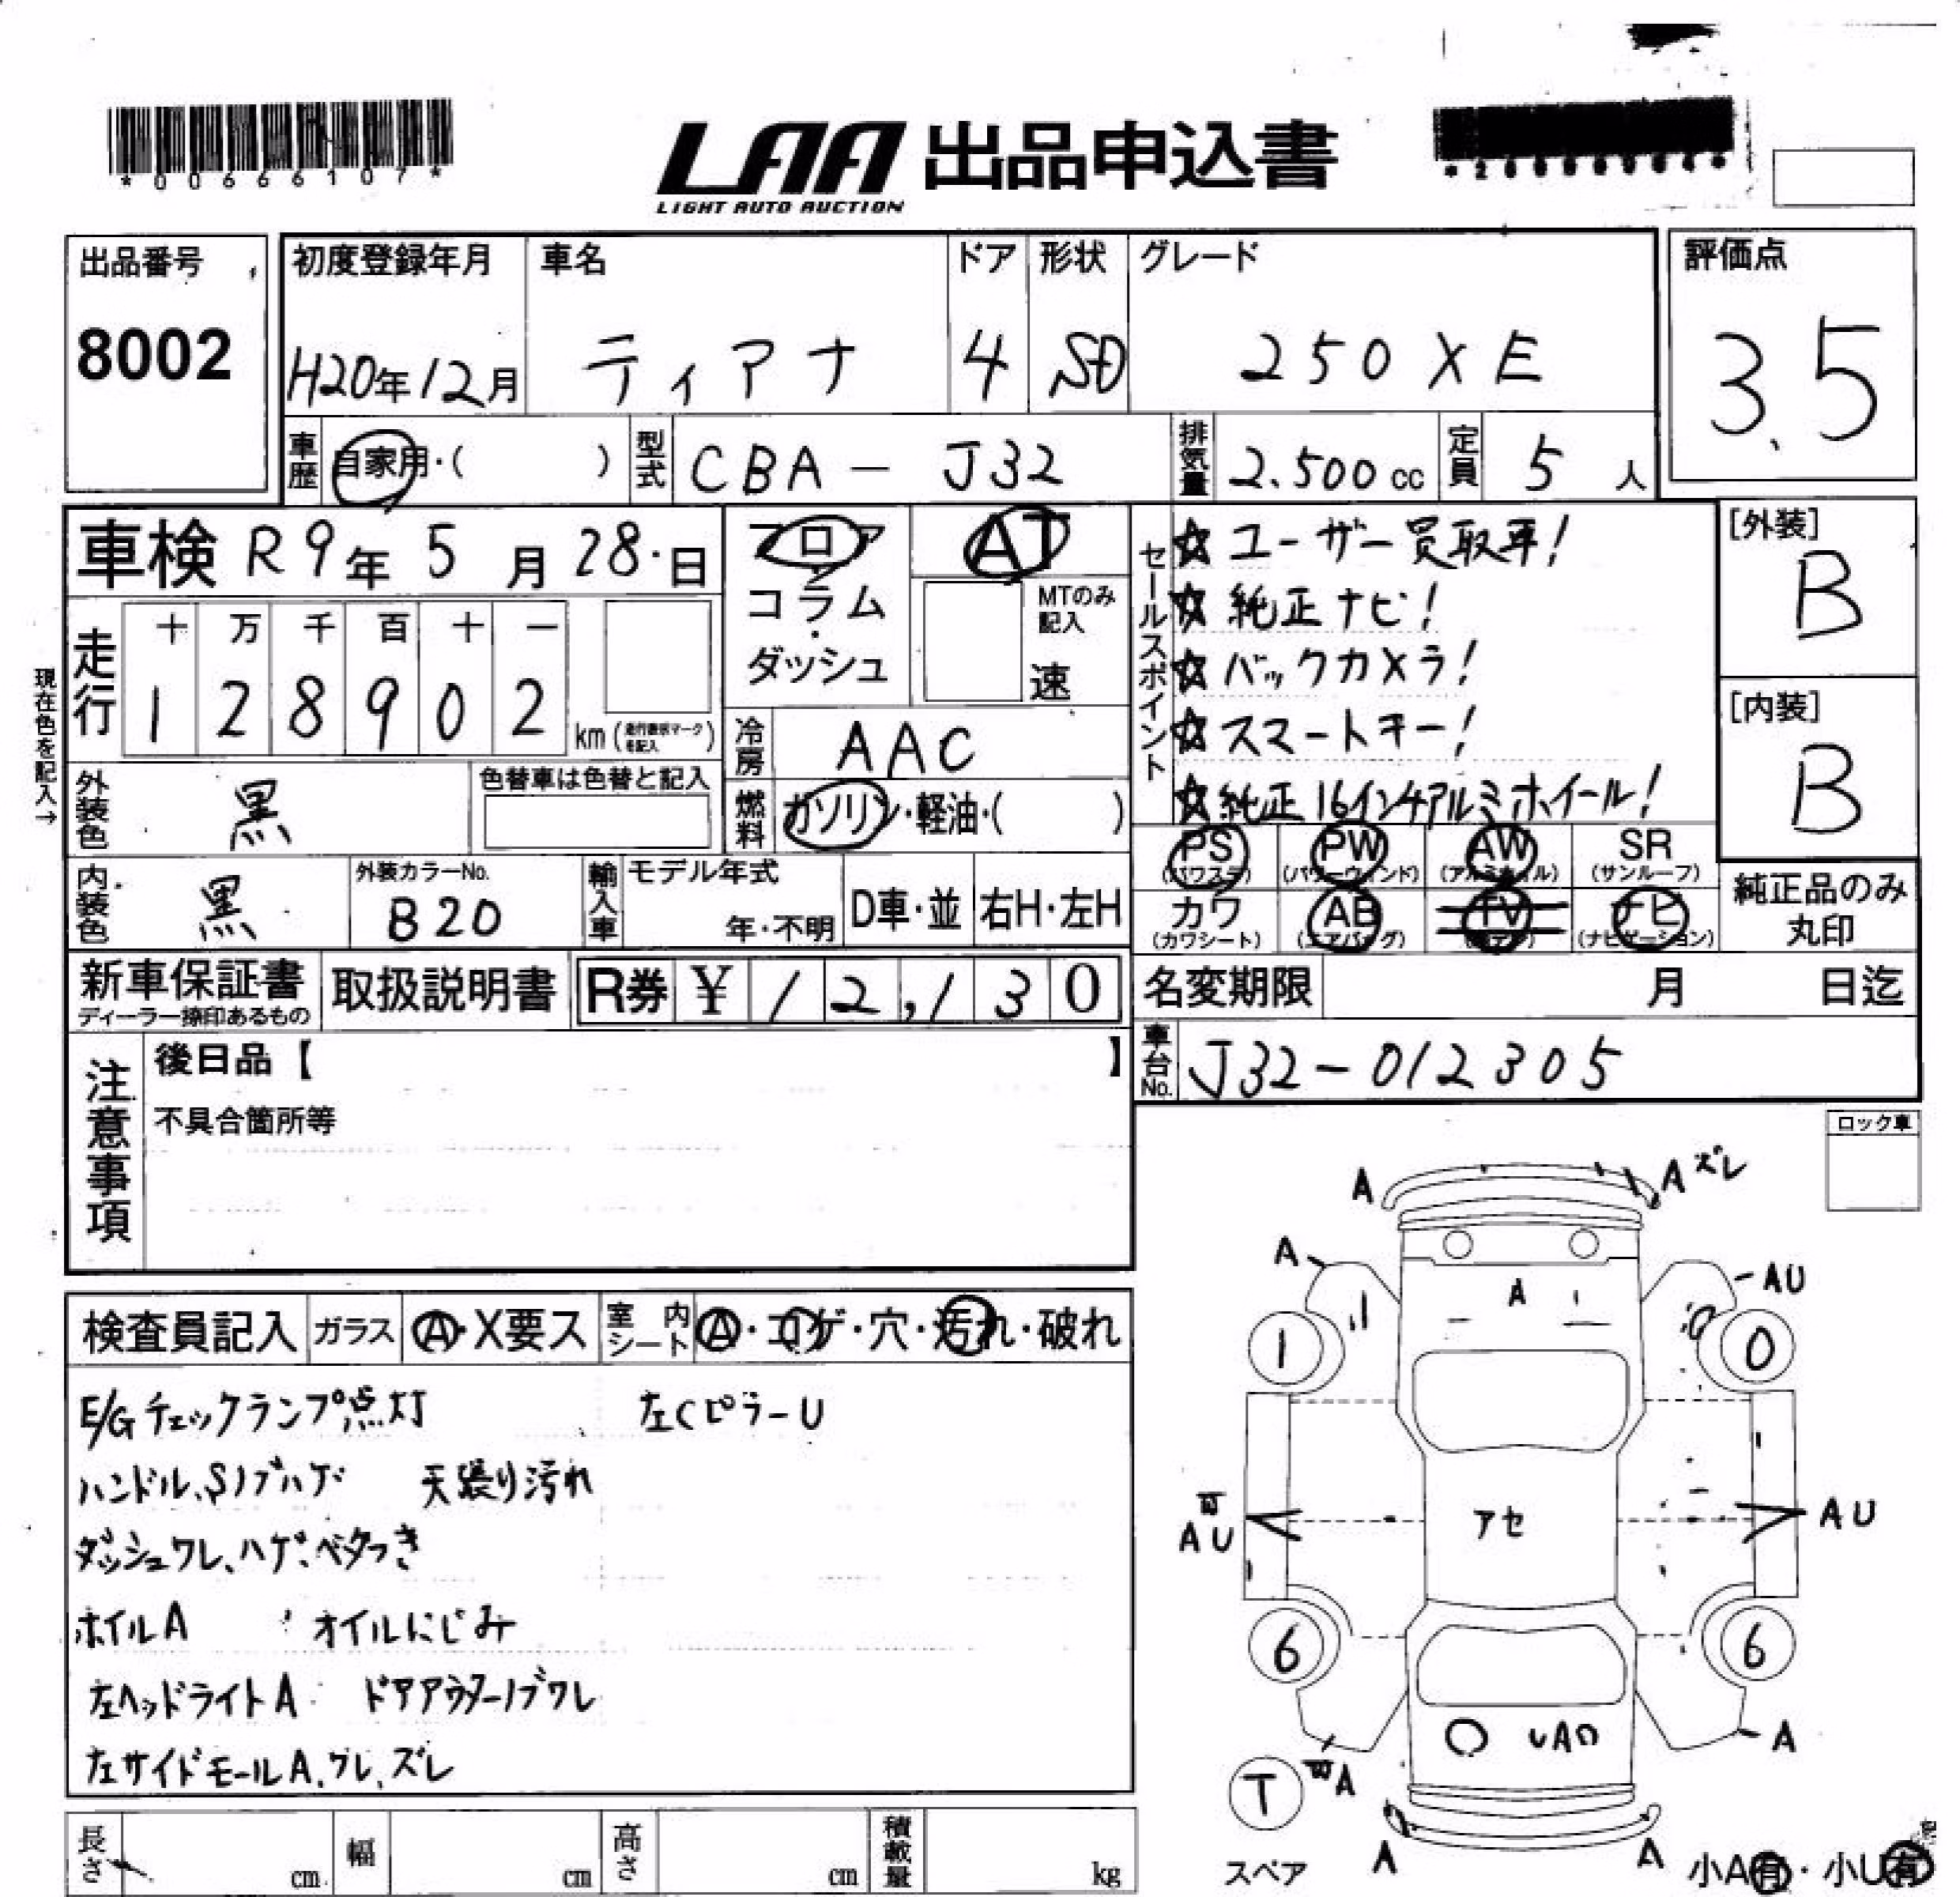 *00666107*
LAA 出品申込書
LIGHT AUTO AUCTION
出品番号
8002
初度登録年月
H20年12月
車名
ティアナ
ドア
4
形状
SD
グレード
250XE
評価点
3.5
車歴 自家用・( )
型式 CBA-J32
排気量 2.500cc
定員 5人
車検 R9年5月28日
フロア・コラム・ダッシュ
AT
MTのみ記入
速
セールスポイント
☆ユーザー買取車!
☆純正ナビ!
☆バックカメラ!
☆スマートキー!
☆純正16インチアルミホイール!
[外装]
B
[内装]
B
現在色を記入→
走行
十 万 千 百 十 一
1 2 8 9 0 2 km
冷房 AAC
外装色 黒
色替車は色替と記入
燃料 ガソリン・軽油・( )
PS (パワステ)
PW (パワーウィンド)
AW (アルミホイル)
SR (サンルーフ)
カワ (カワシート)
AB (エアバッグ)
TV
ナビ (ナビゲーション)
純正品のみ丸印
内装色 黒
外装カラーNo.
B20
輸入車
モデル年式
年・不明
D車・並
右H・左H
新車保証書
ディーラー捺印あるもの
取扱説明書
R券 ¥12,130
名変期限 月 日迄
車台No. J32-012305
注意事項
後日品【 】
不具合箇所等
ロック車
検査員記入
ガラス Ⓐ・X要ス
室内シート Ⓐ・コゲ・穴・汚れ・破れ
E/Gチェックランプ点灯 左CピラーU
ハンドル、Sノブハゲ 天張り汚れ
ダッシュワレ、ハゲ、ベタつき
ホイルA オイルにじみ
左ヘッドライトA ドアアウターノブワレ
左サイドモールA、ワレ、ズレ
A
A ズレ
A
AU
A
1
0
AU
アセ
AU
6
6
UA
A
A
T
スペア
A
A
小A有・小U有
長さ cm
幅 cm
高さ cm
積載量 kg